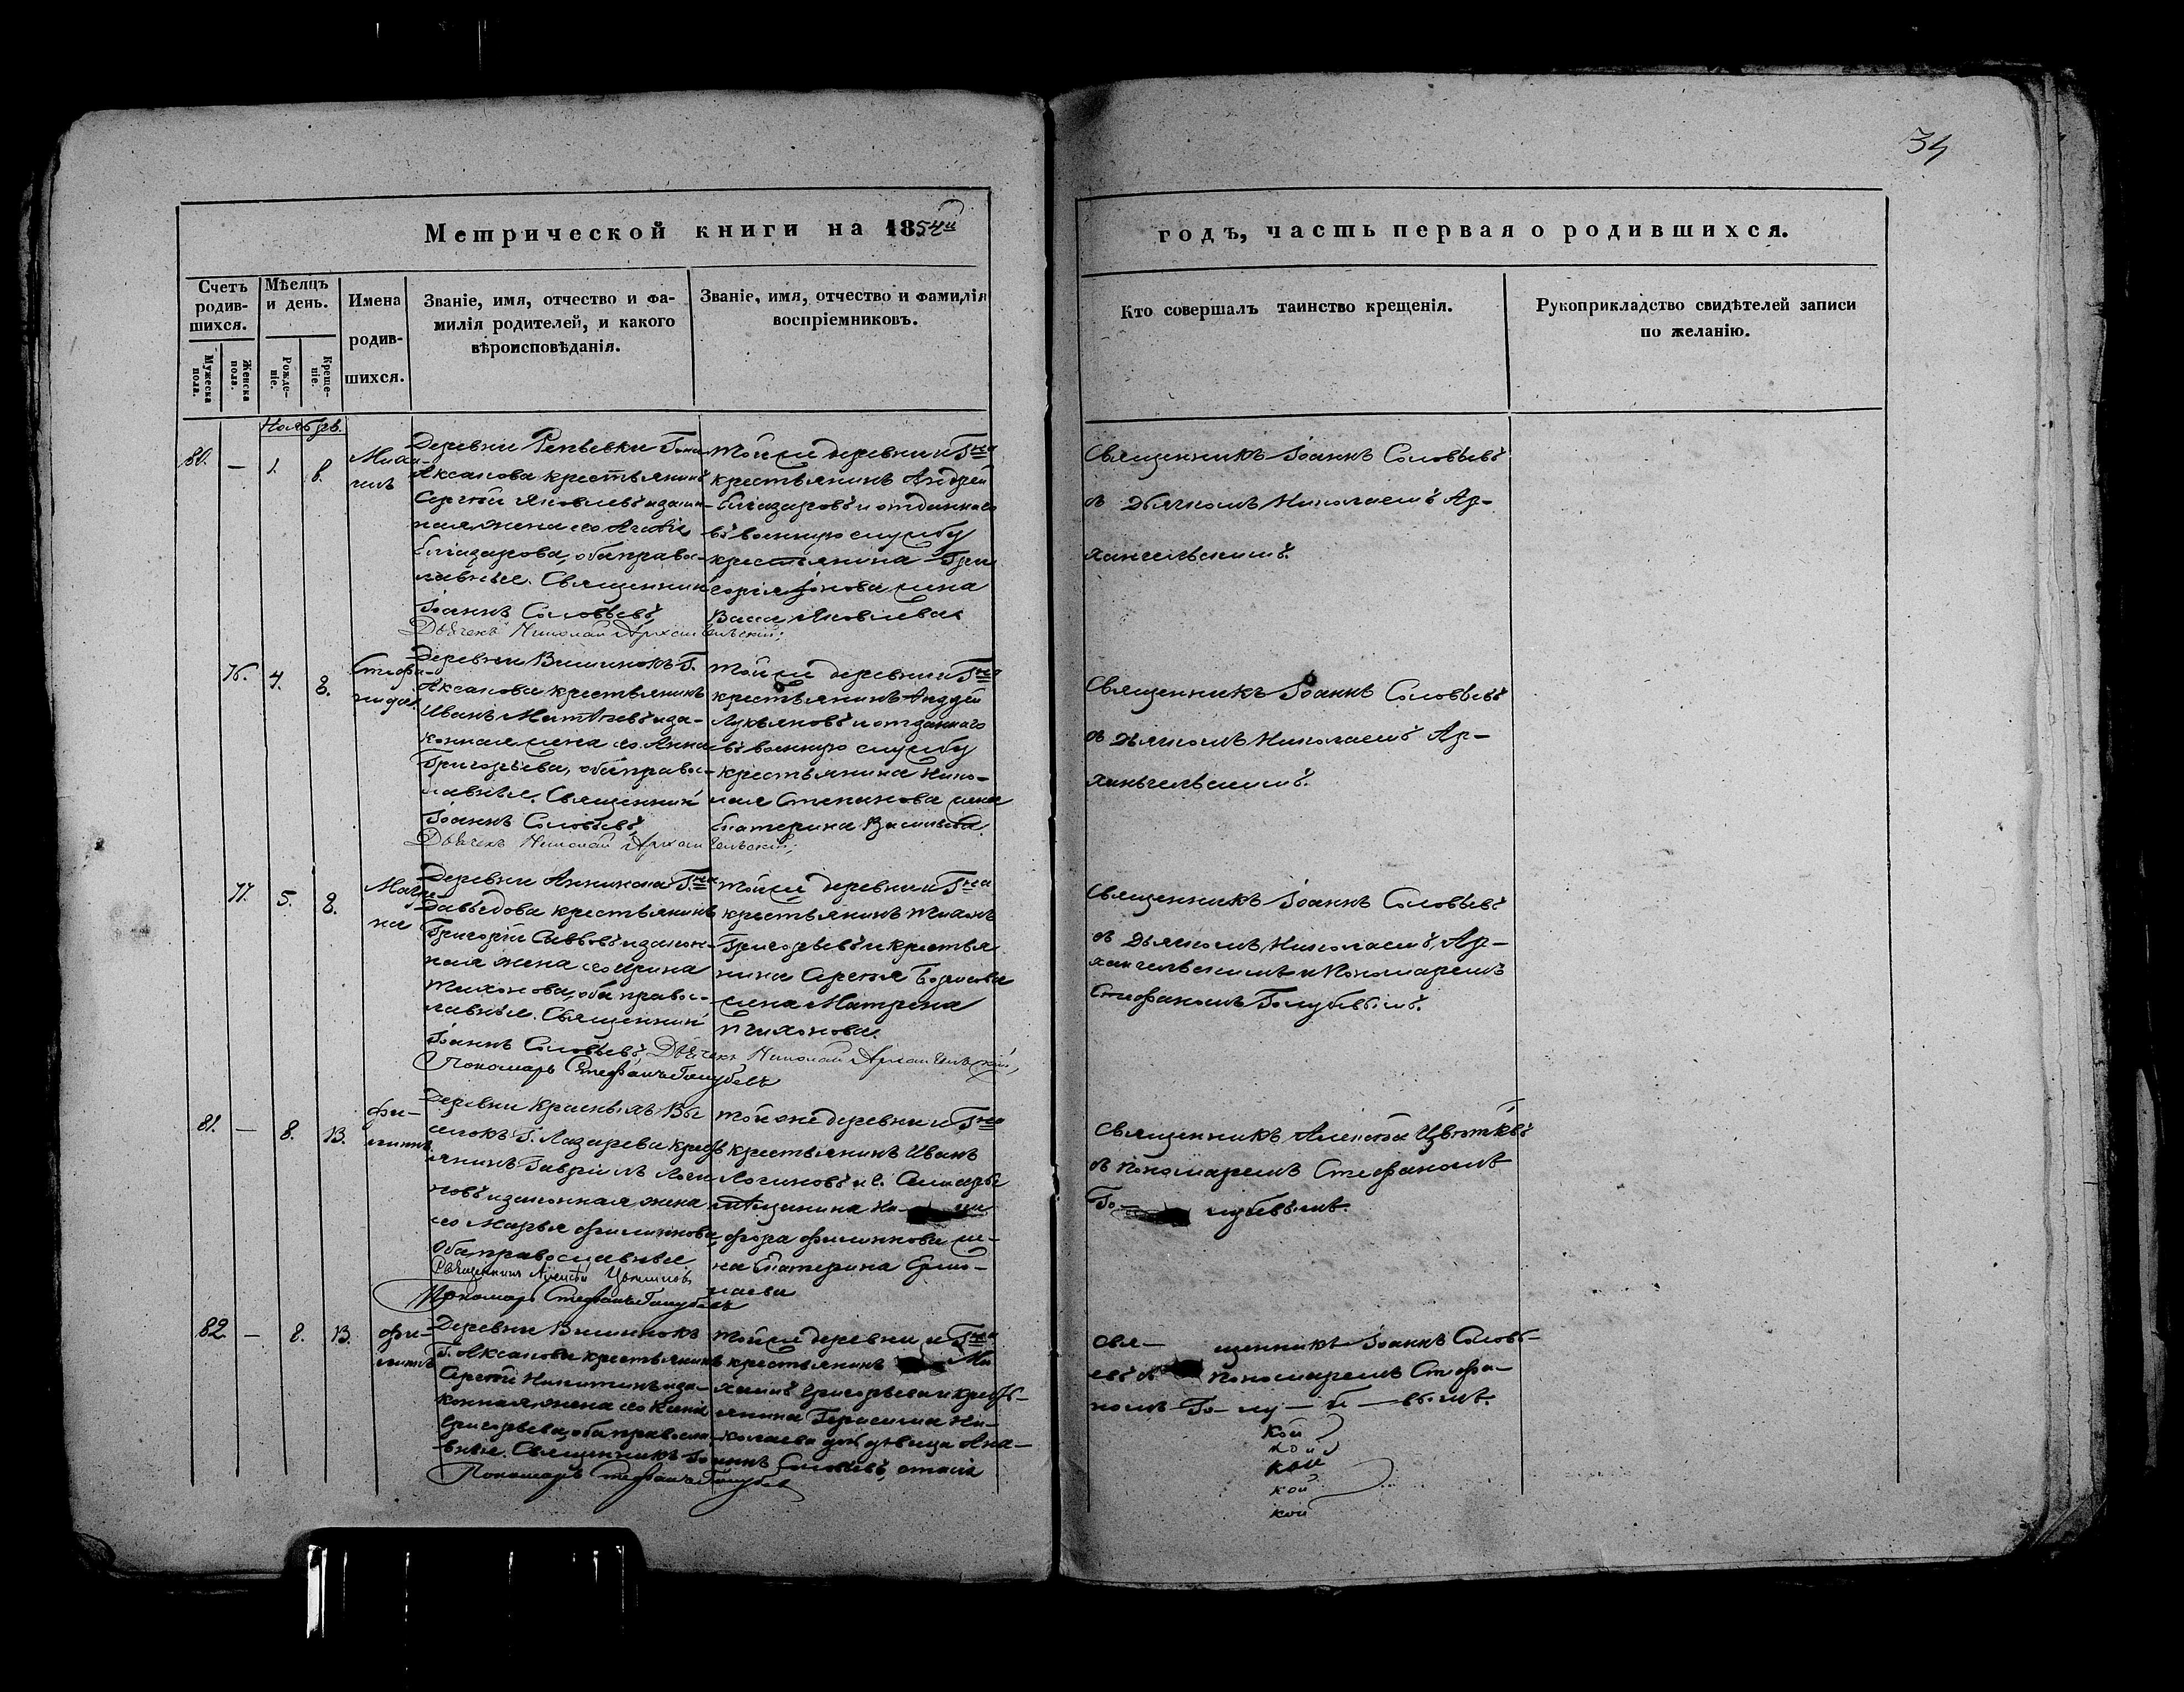 34
Метрической книги на 1854й
годъ, часть первая о родившихся.
Счетъ родив-шихся.
Мѣсяцъ и день.
Имена родив-шихся.
Званіе, имя, отчество и фа-
милія родителей, и какого
вѣроисповѣданія.
Званіе, имя, отчество и фамилія
воспріемниковъ.
Кто совершалъ таинство крещенія.
Рукоприкладство свидѣтелей записи
по желанію.
Мужеска пола.
Женска пола.
Рожде-ніе.
Креще-ніе.
Ноябрь.
80. — 1. 8.
Миха-
илъ
Деревни Репьевки Гона
Аксакова крестьянинъ
Сергѣй Яковлевъ и закон-
ная жена его Агафія
Елизарова, оба право-
лавные. Священникъ
Іоаннъ Соловьевъ
Дьячекъ Николай Архангельскій;
Той же деревни и Гна
крестьянинъ Андрей
Елизаровъ и отданнаго
въ военную службу
крестьянина Гри
горія жена
Васса Яковлева
Священникъ Іоаннъ Соловьевъ
съ дьячкомъ Николаемъ Ар-
хангельскимъ.
76. 4. 8.
Стефа-
нида.
Деревни Вишенокъ Г.
Аксакова крестьянинъ
Иванъ Матвѣевъ и за-
конная жена его Анна
Григорьева, оба правос-
лавные. Священникъ
Іоаннъ Соловьевъ
Дьячекъ Николай Архангельскій;
Той же деревни и Гна
крестьянинъ Андрей
Лукьяновъ и отданнаго
въ военную службу
крестьянина Нико-
лая Степанова жена
Екатерина Васильева.
Священникъ Іоаннъ Соловьевъ
съ дьячкомъ Николаемъ Ар-
хангельскимъ.
77. 5. 8.
Матре
на
Деревни Аннина Гна
Давыдова крестьянинъ
Григорій Савовъ и закон-
ная жена его Ирина
Тихонова, оба правос-
лавные. Священникъ
Іоаннъ Соловьевъ, Дьячекъ Николай Архангельскій,
Пономарь Стефанъ Голубевъ
Той же деревни и Гна
крестьянинъ Тихонъ
Григорьевъ и крестья
нина Сергея Борисова
жена Матрена
Тихонова.
Священникъ Іоаннъ Соловьевъ
съ дьячкомъ Николаемъ Ар-
хангельскимъ и Пономаремъ
Стефаномъ Голубевымъ.
81. — 8. 13.
Фи-
липпъ
Деревни Красныхъ Вы
селокъ Г. Лазарева крест
янинъ Гавріилъ Логи
новъ и законная жена
его Марья Филиппова,
оба православные
Священникъ Алексѣй Цвѣтковъ
Пономарь Стефанъ Голубевъ
Той же деревни и Гна
крестьянинъ Иванъ
Логиновъ и
мѣщанина Ни
фора Филиппова же-
на Екатерина Ермо-
лаева
Священникъ Алексѣй Цвѣтковъ
съ пономаремъ Стефаномъ
Го— лубевымъ.
82. — 8. 13.
Фи-
липпъ
Деревни Вишенокъ
Г. Аксакова крестьянинъ
Сергѣй Никитинъ и за-
конная жена его Ксенія
Григорьева, оба правосла-
вные. Священникъ Іоаннъ Соловьевъ
Пономарь Стефанъ Голубев
Той же деревни и Гна
крестьянинъ Ми
хаилъ Григорьевъ и крест-
янина Герасима Ни-
колаева дочь дѣвица Ана-
стасія
Свя— щенникъ Іоаннъ Соловь-
евъ съ Пономаремъ Стефа-
номъ Го—лу—бе—вымъ.
кой
кой
кой
кой
кой